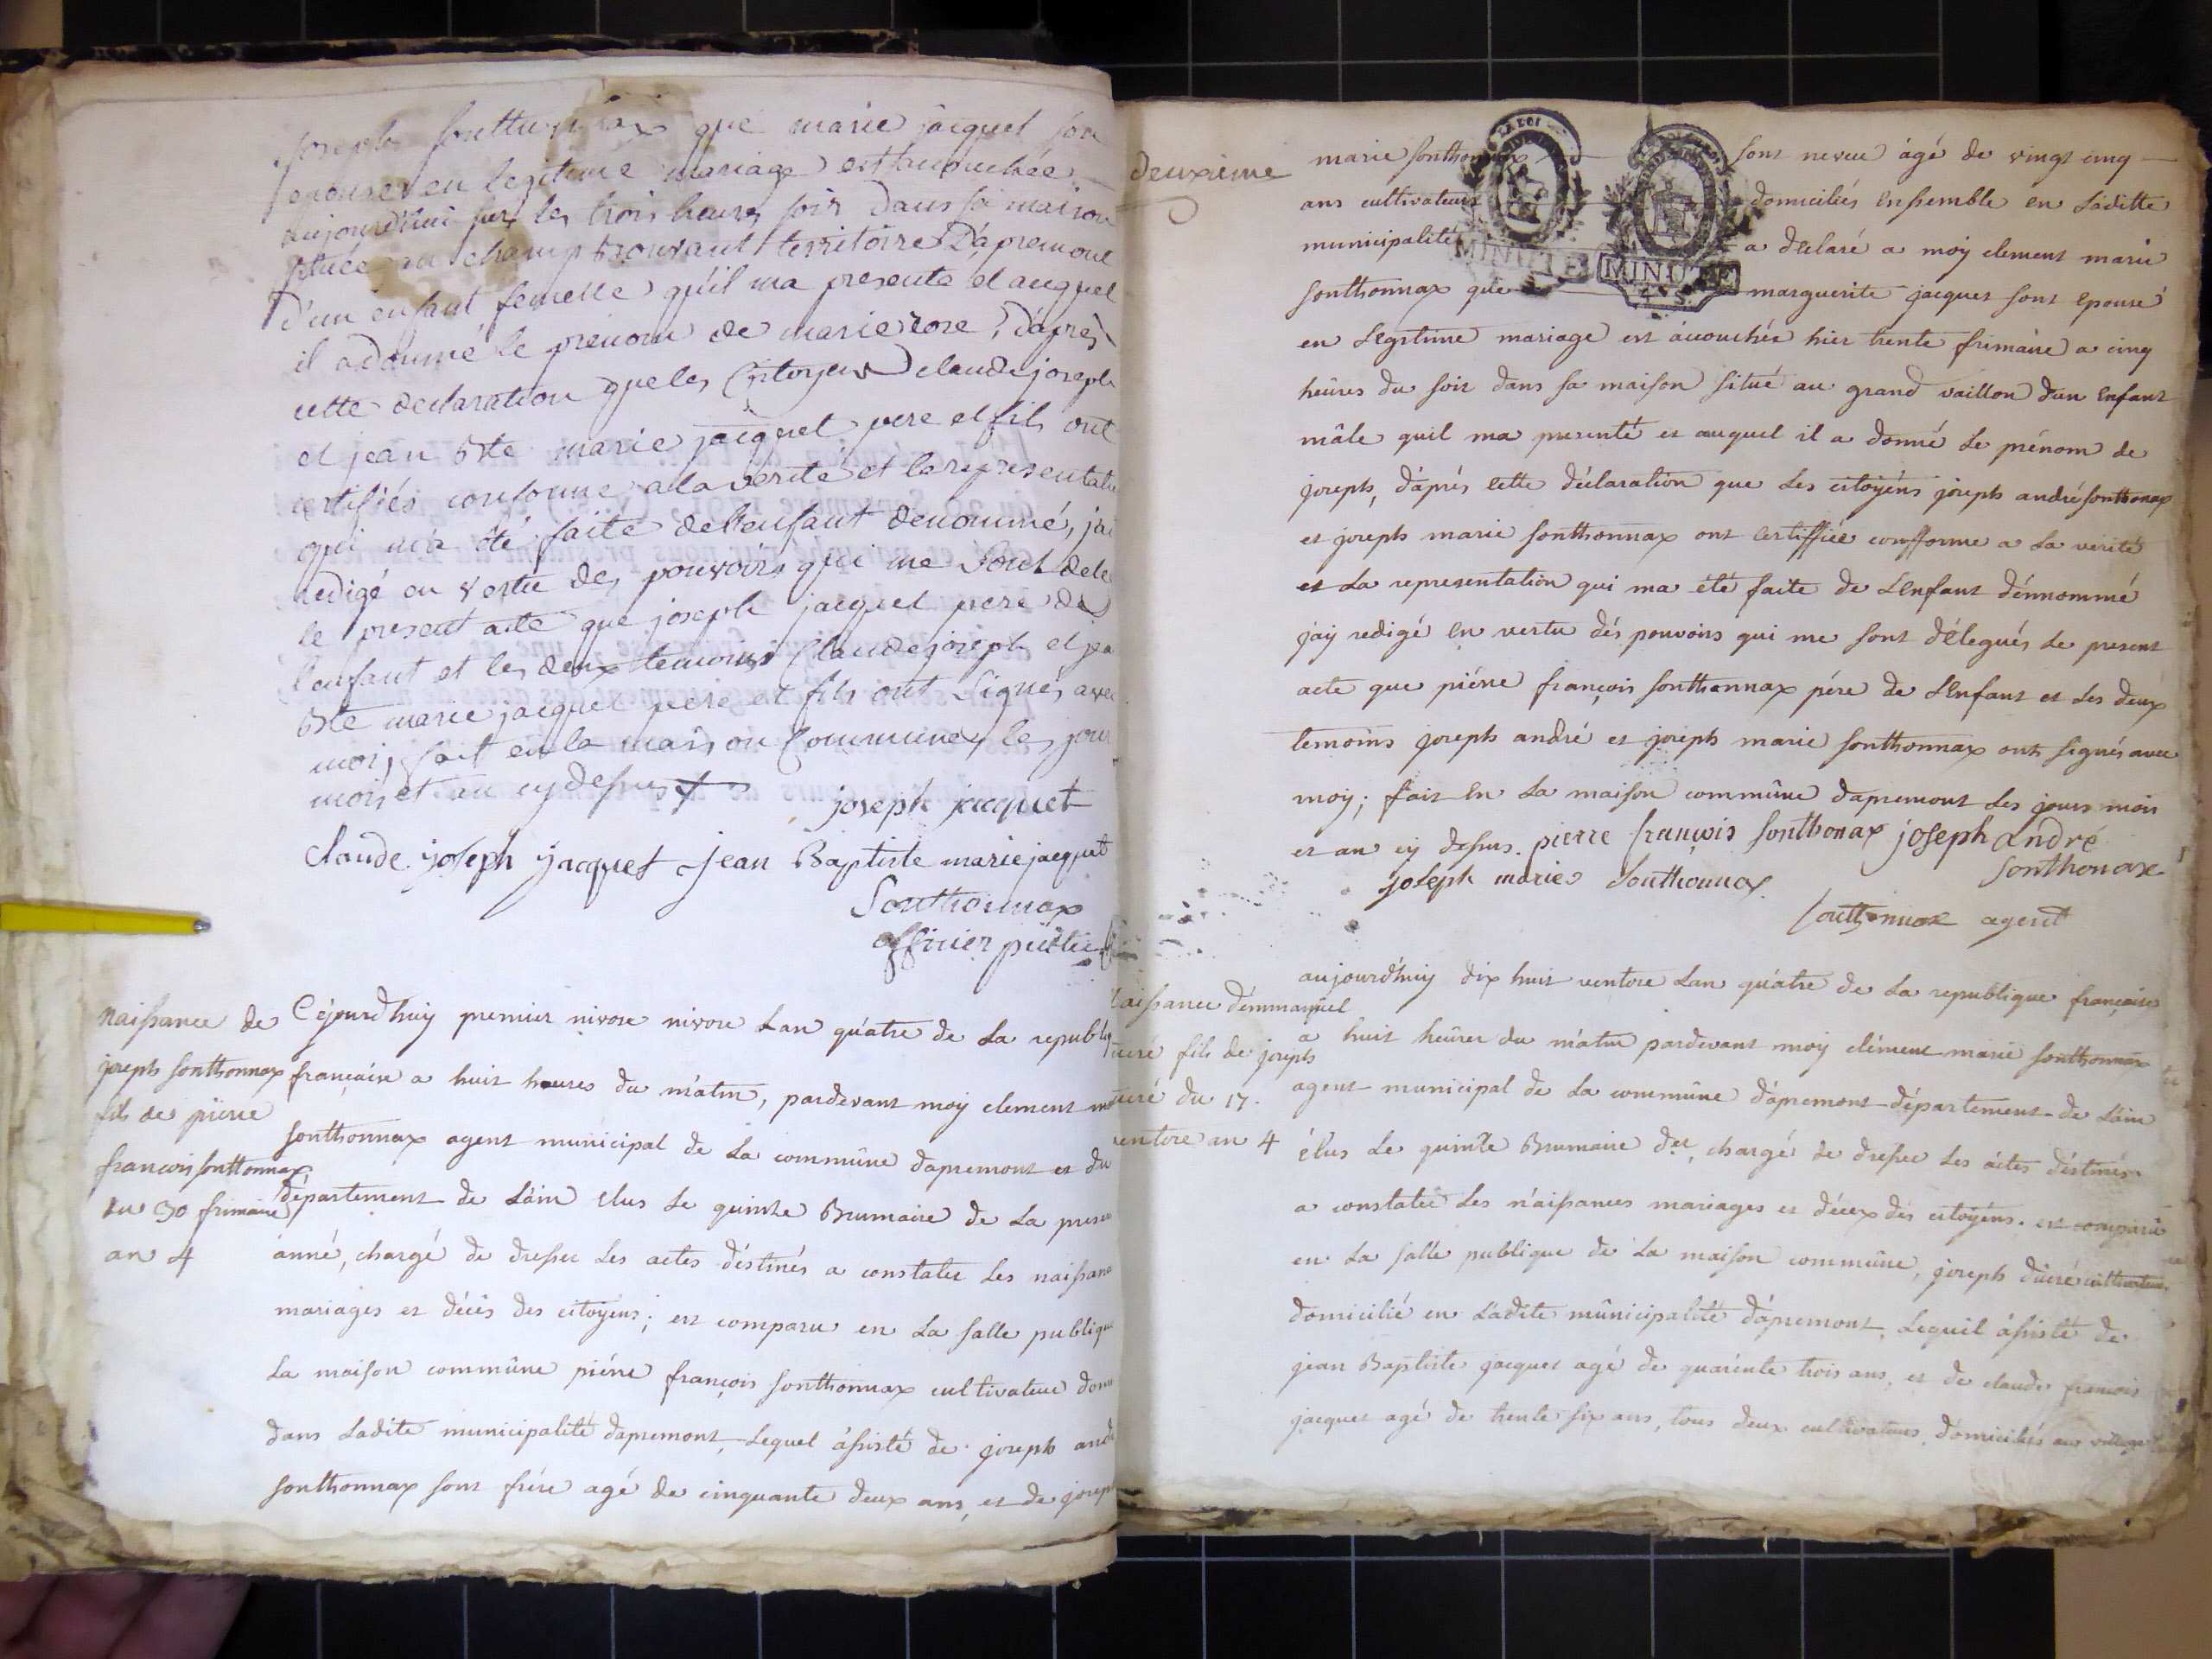 joseph sontthonnax que marie jacquet son
epouse en legitime mariage est accouchée
aujourd'hui sur les trois heures soir dans sa maison
située au champ trouvant territoire d'apremont
d'un enfant femelle qu'il ma presenté et auquel
il a donné le prenom de marie rose, d'apres
cette declaration que les citoyens claude joseph
et jean Bte marie jacquet pere et fils ont
certifiés conforme a la verité et la representatio
qui m'a été faite de l'enfant denommé, j'ai
redigé en vertu des pouvoirs qui me sont dele
le present acte que joseph jacquet pere de
l'enfant et les deux temoins Claude joseph et jea
Bte marie jacquet pere et fils ont signés avec
moi, fait en la maison Commune, les jour
mois et an cy dessus
joseph jacquet
claude joseph jacquet jean Baptiste marie jacquet
Sonthonnax
officier public
naissance de
joseph sonthonnax
fils de piérre
francois sonthonnax
du 30 frimaire
an 4
Céjourdhuy premier nivose nivose Lan quâtre de La republiq
françaire a huit heures du mâtin, pardevant moy clement ma
sonthonnax agent municipal de La commûne dapremont et du
département de Lâin elus Le quinze Brumaire de La presen
ànné, chargé de dresser Les actes déstinés a constater Les naissanc
mariages et décès des citoyens; est comparu en La salle publique
La maison commûne piérre françois sonthonnax cultivateur dom
dans Ladite municipalité dapremont, Lequel âssisté de joseph andr
sonthonnax sont frére agé de cinquante deux ans, et de joseph
deuxieme
marie sonthonnax sont neveu âgé de vingt cinq
ans cultivateurs domiciliés Enssemble en Laditte
municipalité a déclaré a moy clement marie
sonthonnax que marguerite jacquet sont epouse
en Légitime mariage est âcouchée hier trente frimaire a cinq
heûres du soir dans sa maison situé au grand vaillon dun Enfant
mâle quil ma presenté et auquel il a donné Le prénom de
joseph, dâprés cette déclaration que Les citoyéns joseph andré sonthonax
et joseph marie sonthonnax ont certiffiée confforme a La verité
et La representation qui ma été faite de LEnfant dénnommé
jay redigé En vertu dés pouvoirs qui me sont délegués Le present
acte que piérre françois sonthonnax pére de LEnfant et Les deux
temoins joseph andré et joseph marie sonthonnax ont signés avec
moy; fait En La maison commûne dapremont Les jours mois
et an cy dessus. pierre françois sonthonax joseph andré
sonthonax
joseph marie Sonthonnax
sonthonnax agent
LA LOI
MINUTE
MINUTE
4 S.
naissance démmanuel
ducré fils de joseph
ducré du 17.
ventose an 4
aujourdhuy dix huit ventose Lan quâtre de La republique française
a huit heûres du mâtin pardevant moy clément marie sonthonnax
agent municipal de La commûne dâpremont département de Lâin
élus Le quinze Brumaire der, chargé de dresser Les âctes déstinés
a constater Les nâissances mariages et décex dés citoyéns. est comparû
en La salle publique de La maison commûne, joseph ducré cultivateur
domicilié en Ladite mûnicipalité dâpremont, Lequil âssisté de
jean Baptiste jacquet agé de quarénte trois ans, et de claude francois
jacquet agé de trente six ans, tous deux cultivateurs domiciliés au village